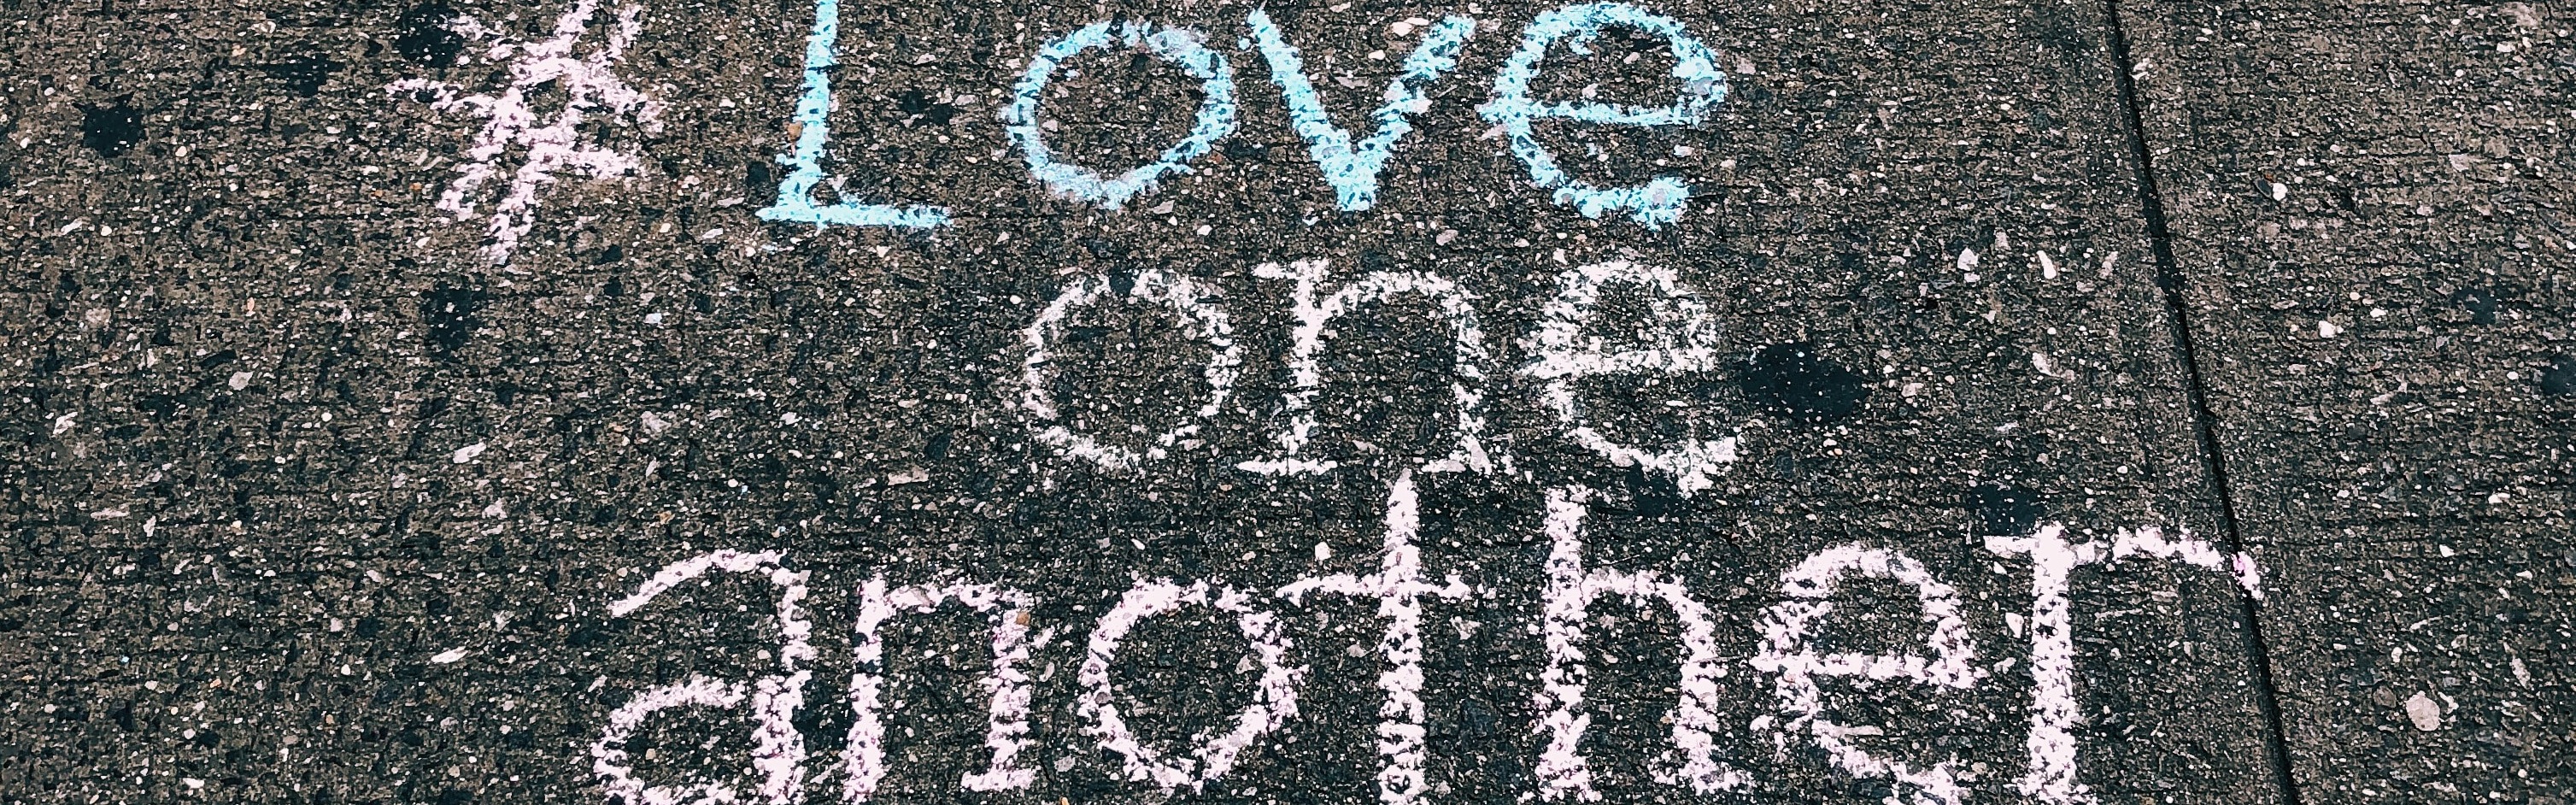 # Love
one
another